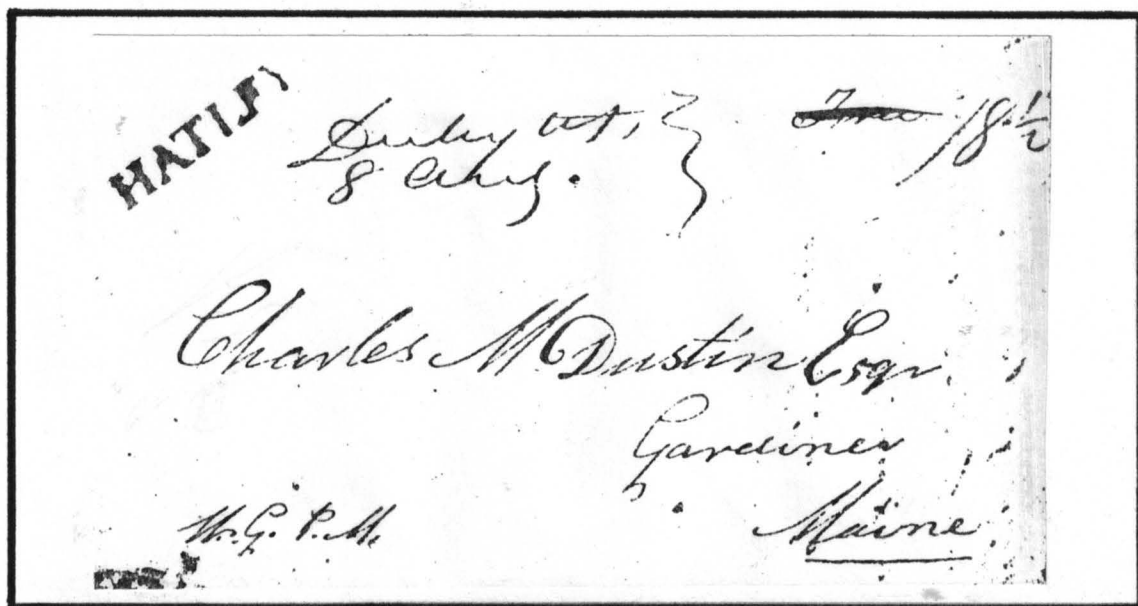 HATIF
Derby Vt,
8 Aug.
Free 18 1/2
Charles M Dustin Esqr.
Gardiner
Maine
P.M.